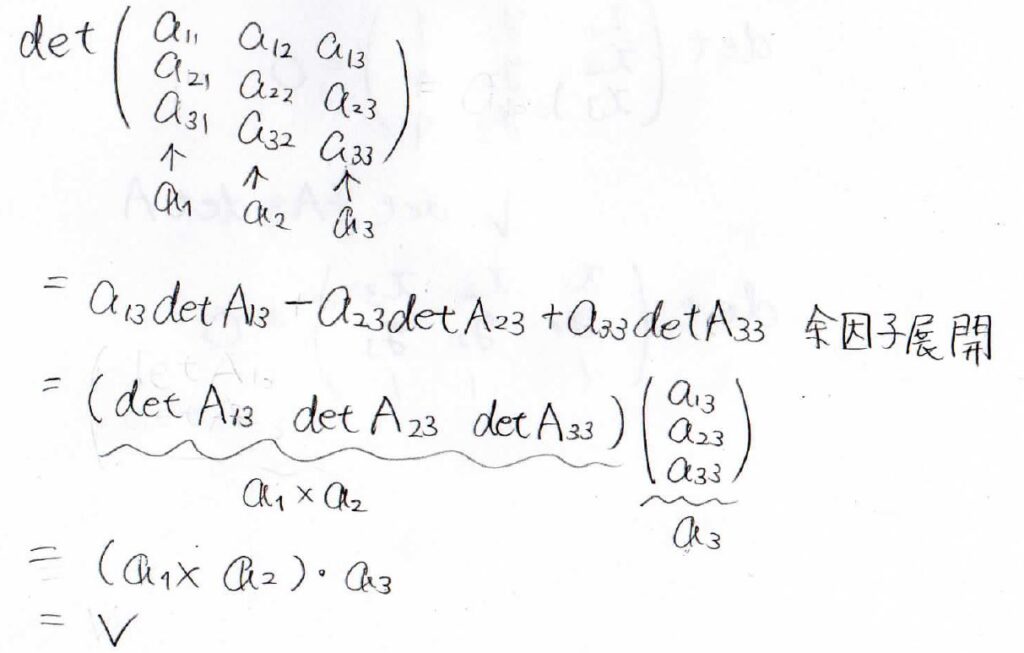 det ( a₁₁ a₁₂ a₁₃
a₂₁ a₂₂ a₂₃
a₃₁ a₃₂ a₃₃ )
↑ ↑ ↑
𝕒₁ 𝕒₂ 𝕒₃
= a₁₃ det A₁₃ − a₂₃ det A₂₃ + a₃₃ det A₃₃ 余因子展開
= ( det A₁₃ det A₂₃ det A₃₃ ) ( a₁₃
a₂₃
a₃₃ )
𝕒₁ × 𝕒₂
𝕒₃
= ( 𝕒₁ × 𝕒₂ ) · 𝕒₃
= V